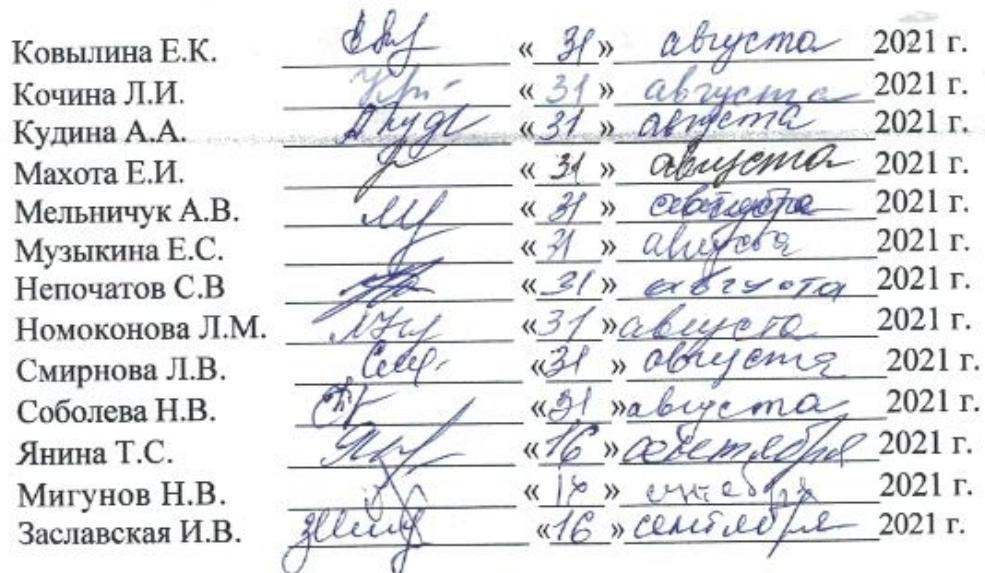 Ковылина Е.К. « 31 » августа 2021 г.
Кочина Л.И. « 31 » августа 2021 г.
Кудина А.А. « 31 » августа 2021 г.
Махота Е.И. « 31 » августа 2021 г.
Мельничук А.В. « 31 » 2021 г.
Музыкина Е.С. « 31 » августа 2021 г.
Непочатов С.В « 31 » августа 2021 г.
Номоконова Л.М. « 31 » августа 2021 г.
Смирнова Л.В. « 31 » августа 2021 г.
Соболева Н.В. « 31 » августа 2021 г.
Янина Т.С. « 16 » сентября 2021 г.
Мигунов Н.В. « » 2021 г.
Заславская И.В. « 16 » сентября 2021 г.